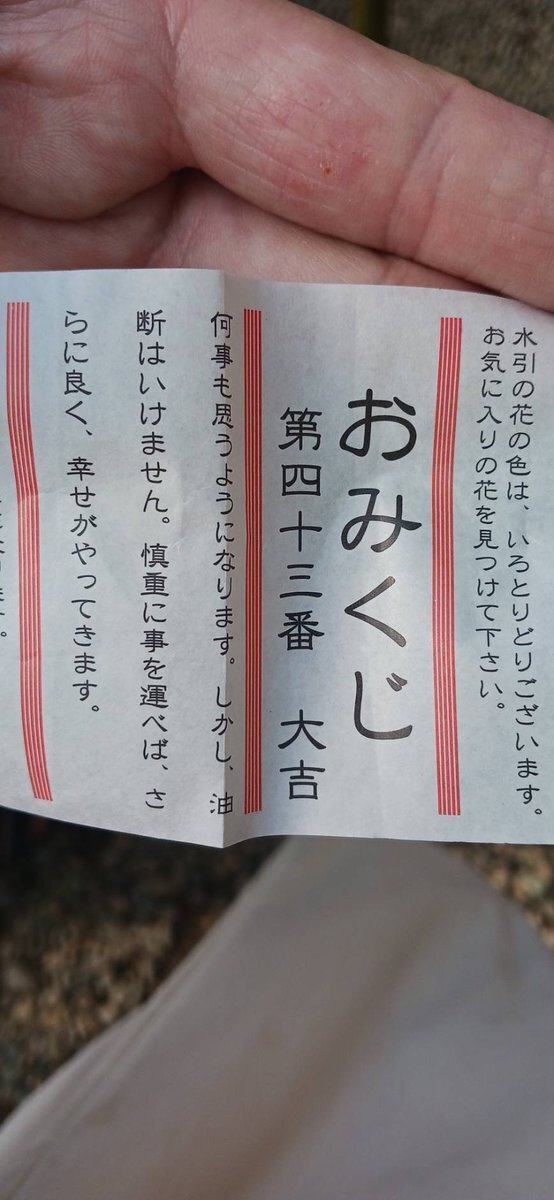 水引の花の色は、いろとりどりございます。
お気に入りの花を見つけて下さい。
おみくじ
第四十三番 大吉
何事も思うようになります。しかし、油
断はいけません。慎重に事を運べば、さ
らに良く、幸せがやってきます。